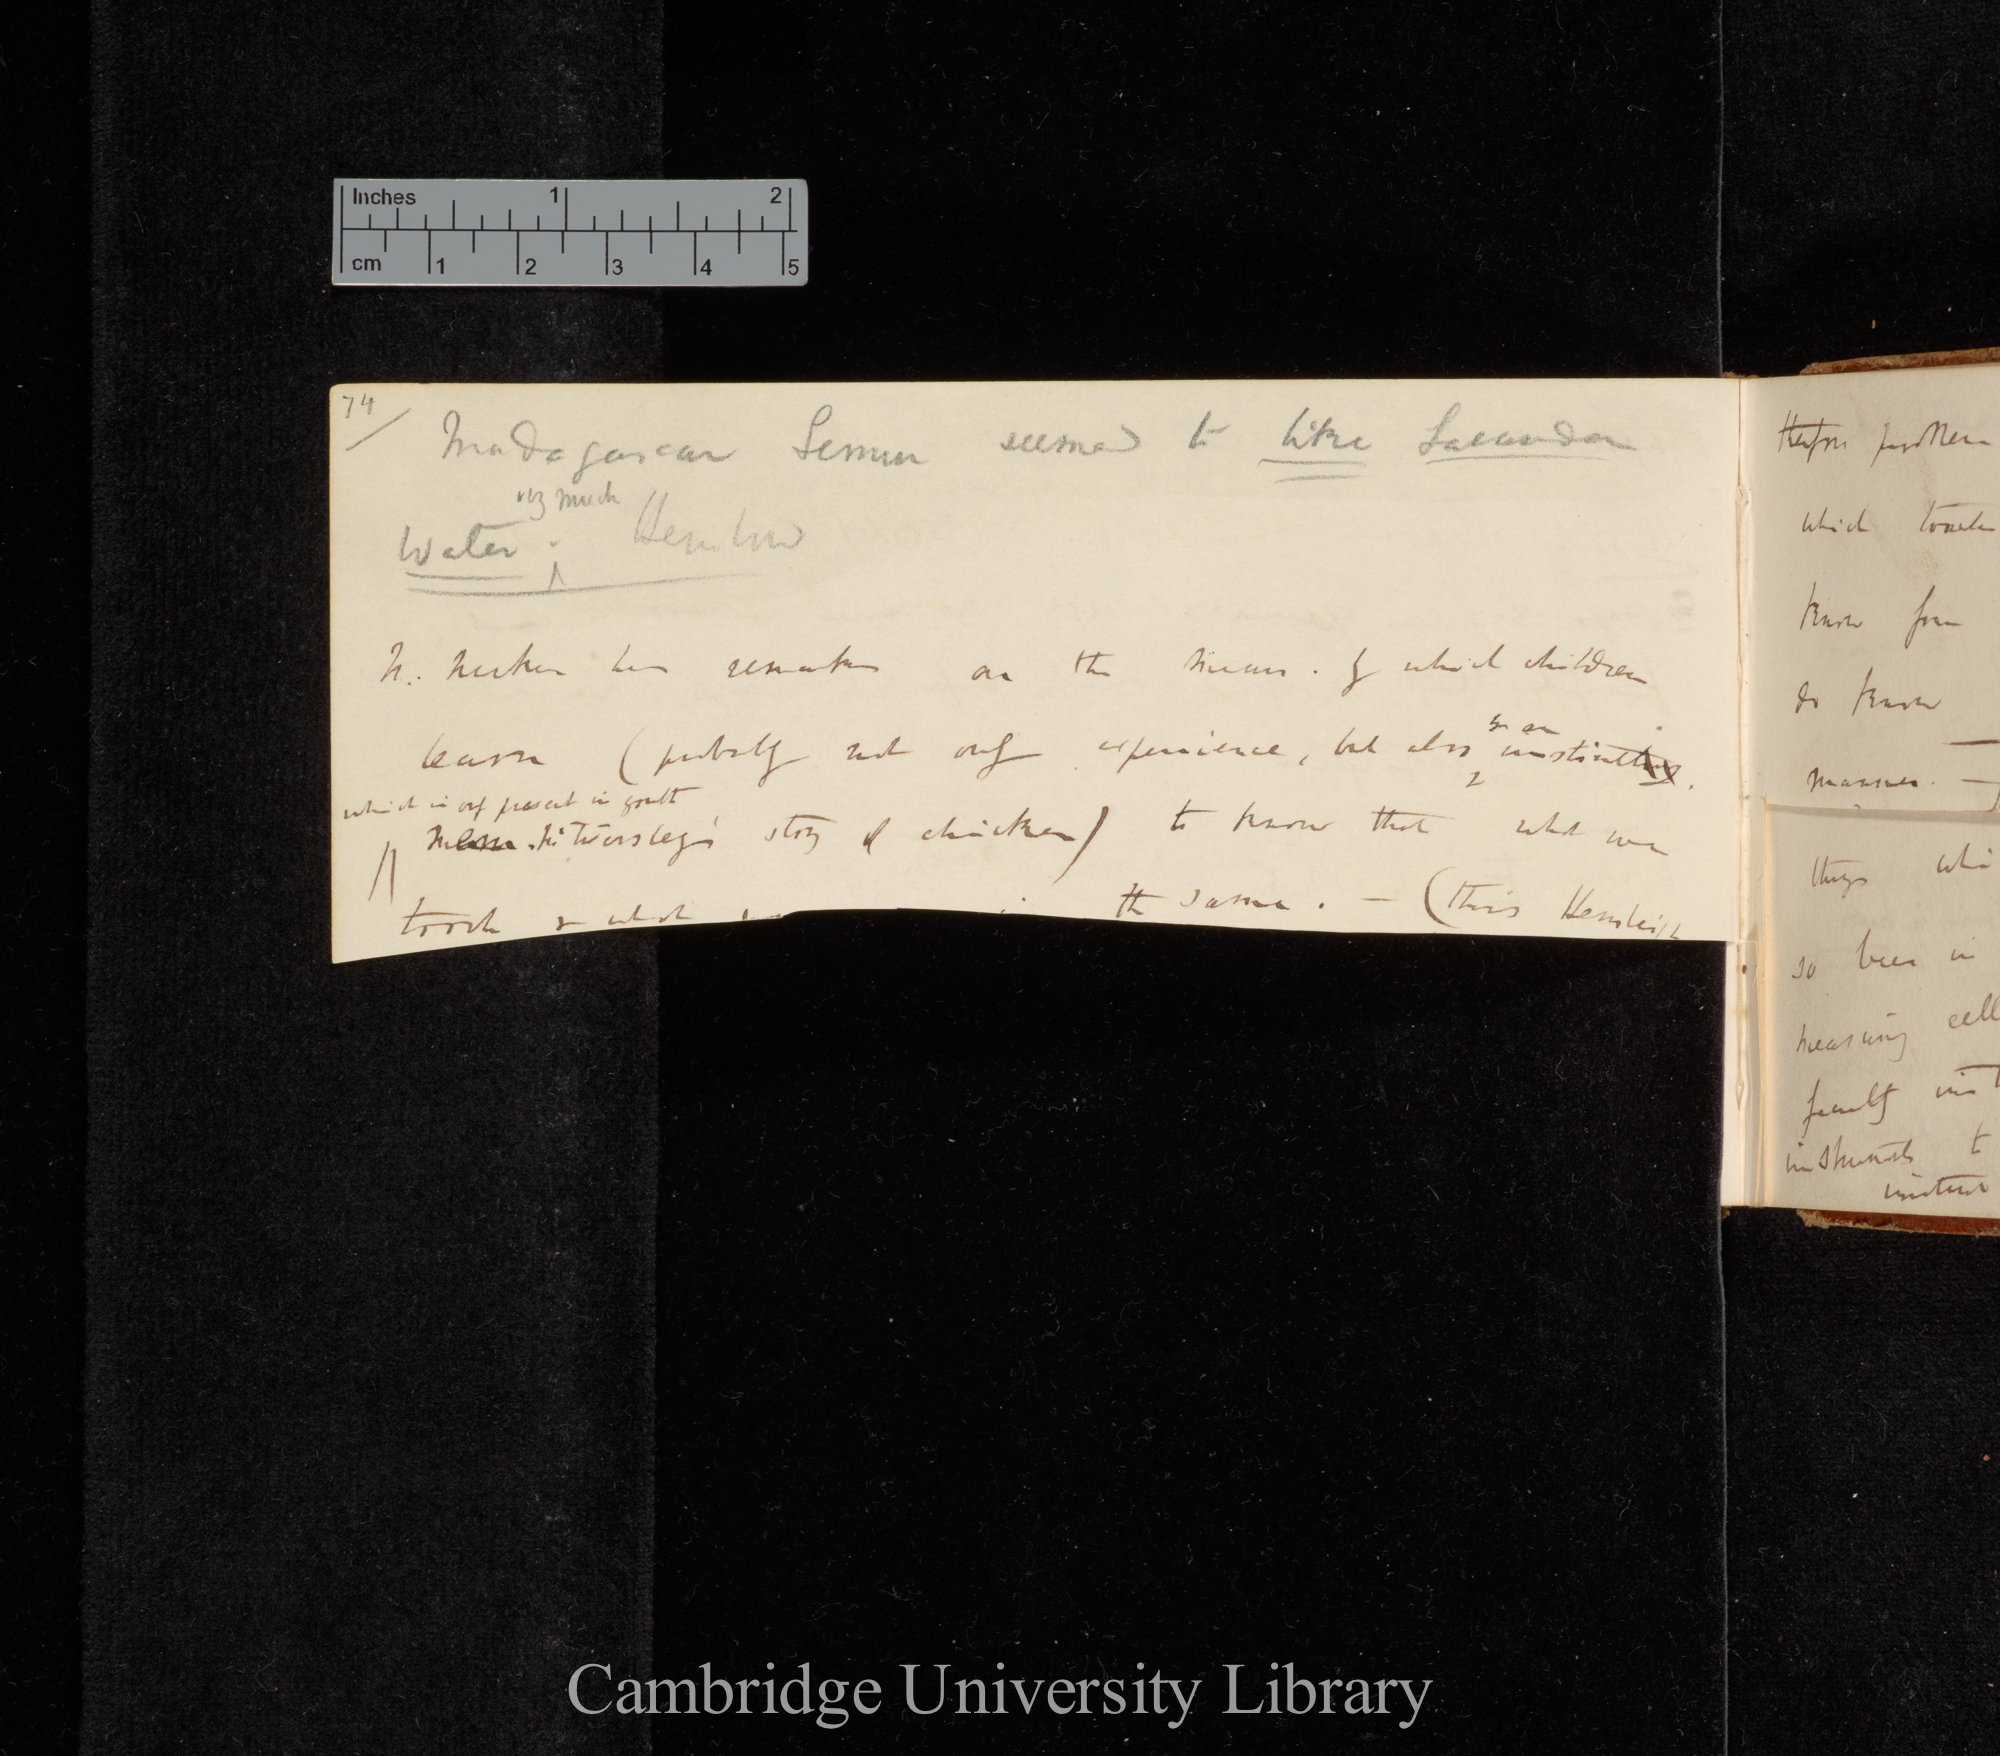 Inches 1 2
cm 1 2 3 4 5
74
Madagascar Lemur seemed to like Lavender
very much
Water. Henslow
M. Necker has remarks on the means. by which children
by an
learn (probably not only experience, but also instinct
which is only present in youth
story of chicken) to know that what we
touch & what the same. — (this Hensleigh
therefore problem
which touch
know from
do know
manner. —
things whi
so bees in
measuring cell
faculty
instruments t
instead
Cambridge University Library